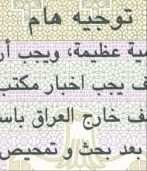 توجيه هام
سية عظيمة، ويجب أر
ف يجب اخبار مكتب
ف خارج العراق باس
بعد بحث و تمحيص